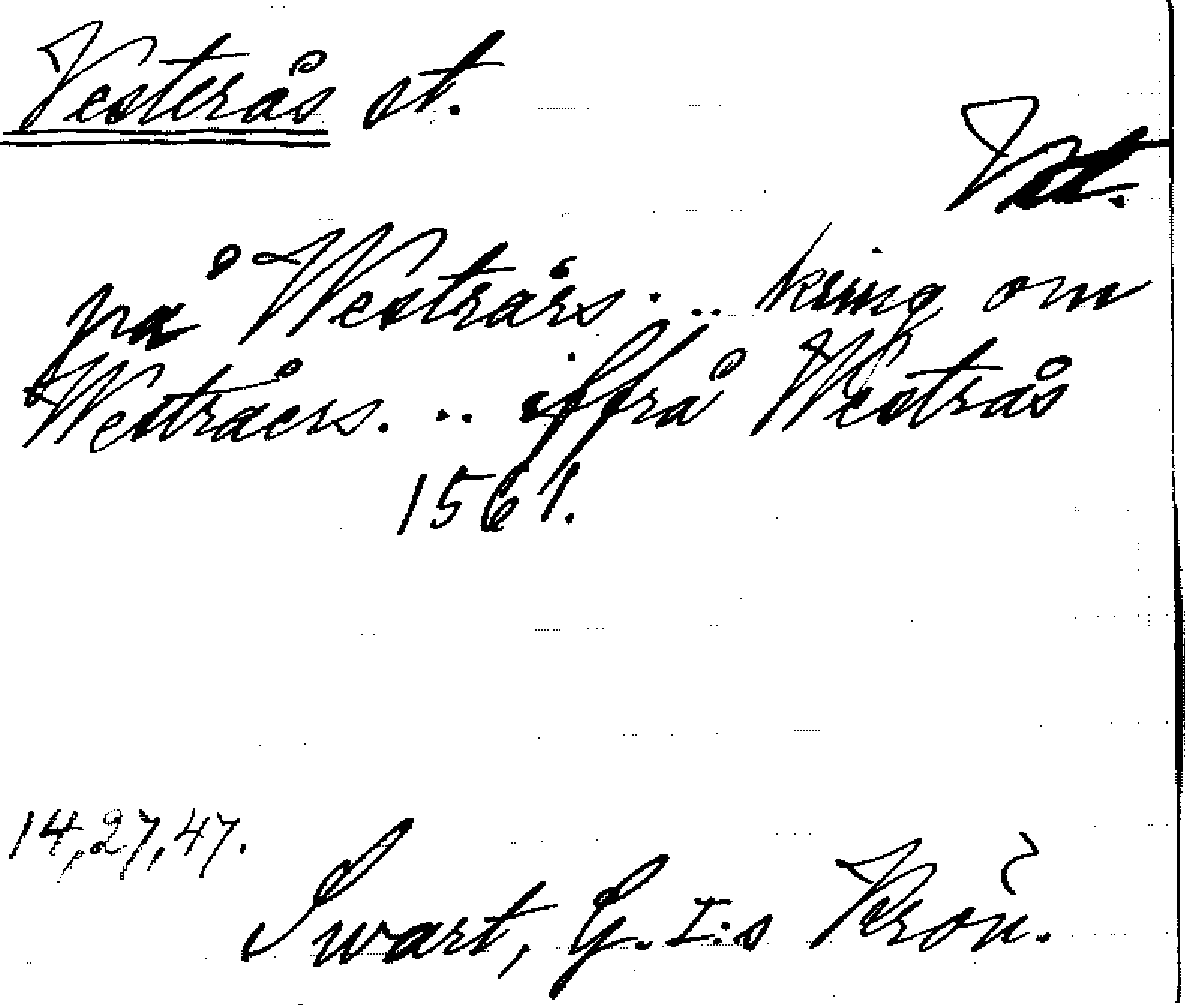 Vesterås st.
Vstl.
på Westrårs... kring om
Westråers. .. iffrå Westrås
1561.
14,27,47.
Swart, G. I:s Krön.